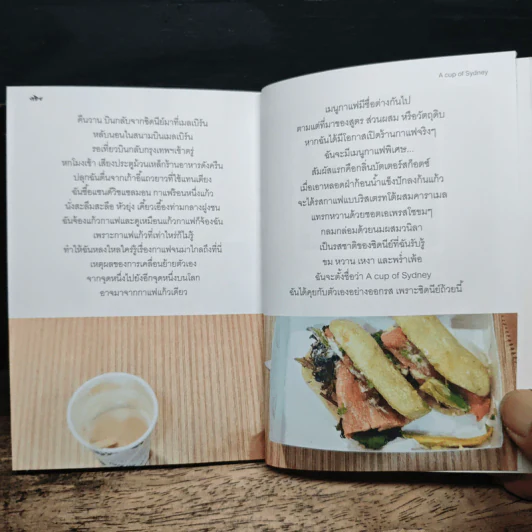 คืนวาน บินกลับจากซิดนีย์มาที่เมลเบิร์น
หลับนอนในสนามบินเมลเบิร์น
รอเที่ยวบินกลับกรุงเทพฯเช้าตรู่
หกโมงเช้า เสียงประตูม้วนเหล็กร้านอาหารดังครืน
ปลุกฉันตื่นจากเก้าอี้แถวยาวที่ใช้แทนเตียง
ฉันซื้อแซนด์วิชแซลมอน กาแฟร้อนหนึ่งแก้ว
นั่งสะลึมสะลือ หัวยุ่ง เคี้ยวเอื้องท่ามกลางฝูงชน
ฉันจ้องแก้วกาแฟและดูเหมือนแก้วกาแฟก็จ้องฉัน
เพราะกาแฟแก้วที่เท่าไหร่ก็ไม่รู้
ทำให้ฉันหลงใหลใคร่รู้เรื่องกาแฟจนมาไกลถึงที่นี่
เหตุผลของการเคลื่อนย้ายตัวเอง
จากจุดหนึ่งไปยังอีกจุดหนึ่งบนโลก
อาจมาจากกาแฟแก้วเดียว
A cup of Sydney
เมนูกาแฟมีชื่อต่างกันไป
ตามแต่ที่มาของสูตร ส่วนผสม หรือวัตถุดิบ
หากฉันได้มีโอกาสเปิดร้านกาแฟจริงๆ
ฉันจะมีเมนูกาแฟพิเศษ...
สัมผัสแรกคือกลิ่นบัตเตอร์สก็อตช์
เมื่อเอาหลอดฝ่าก้อนน้ำแข็งปักลงก้นแก้ว
จะได้รสกาแฟแบบริสเตรทโต้ผสมคาราเมล
แทรกหวานด้วยชอตเอสเพรสโซขมๆ
กลมกล่อมด้วยนมผสมวนิลา
เป็นรสชาติของซิดนีย์ที่ฉันรับรู้
ขม หวาน เหงา และพร่ำเพ้อ
ฉันจะตั้งชื่อว่า A cup of Sydney
ฉันได้คุยกับตัวเองอย่างออกรส เพราะซิดนีย์ถ้วยนี้